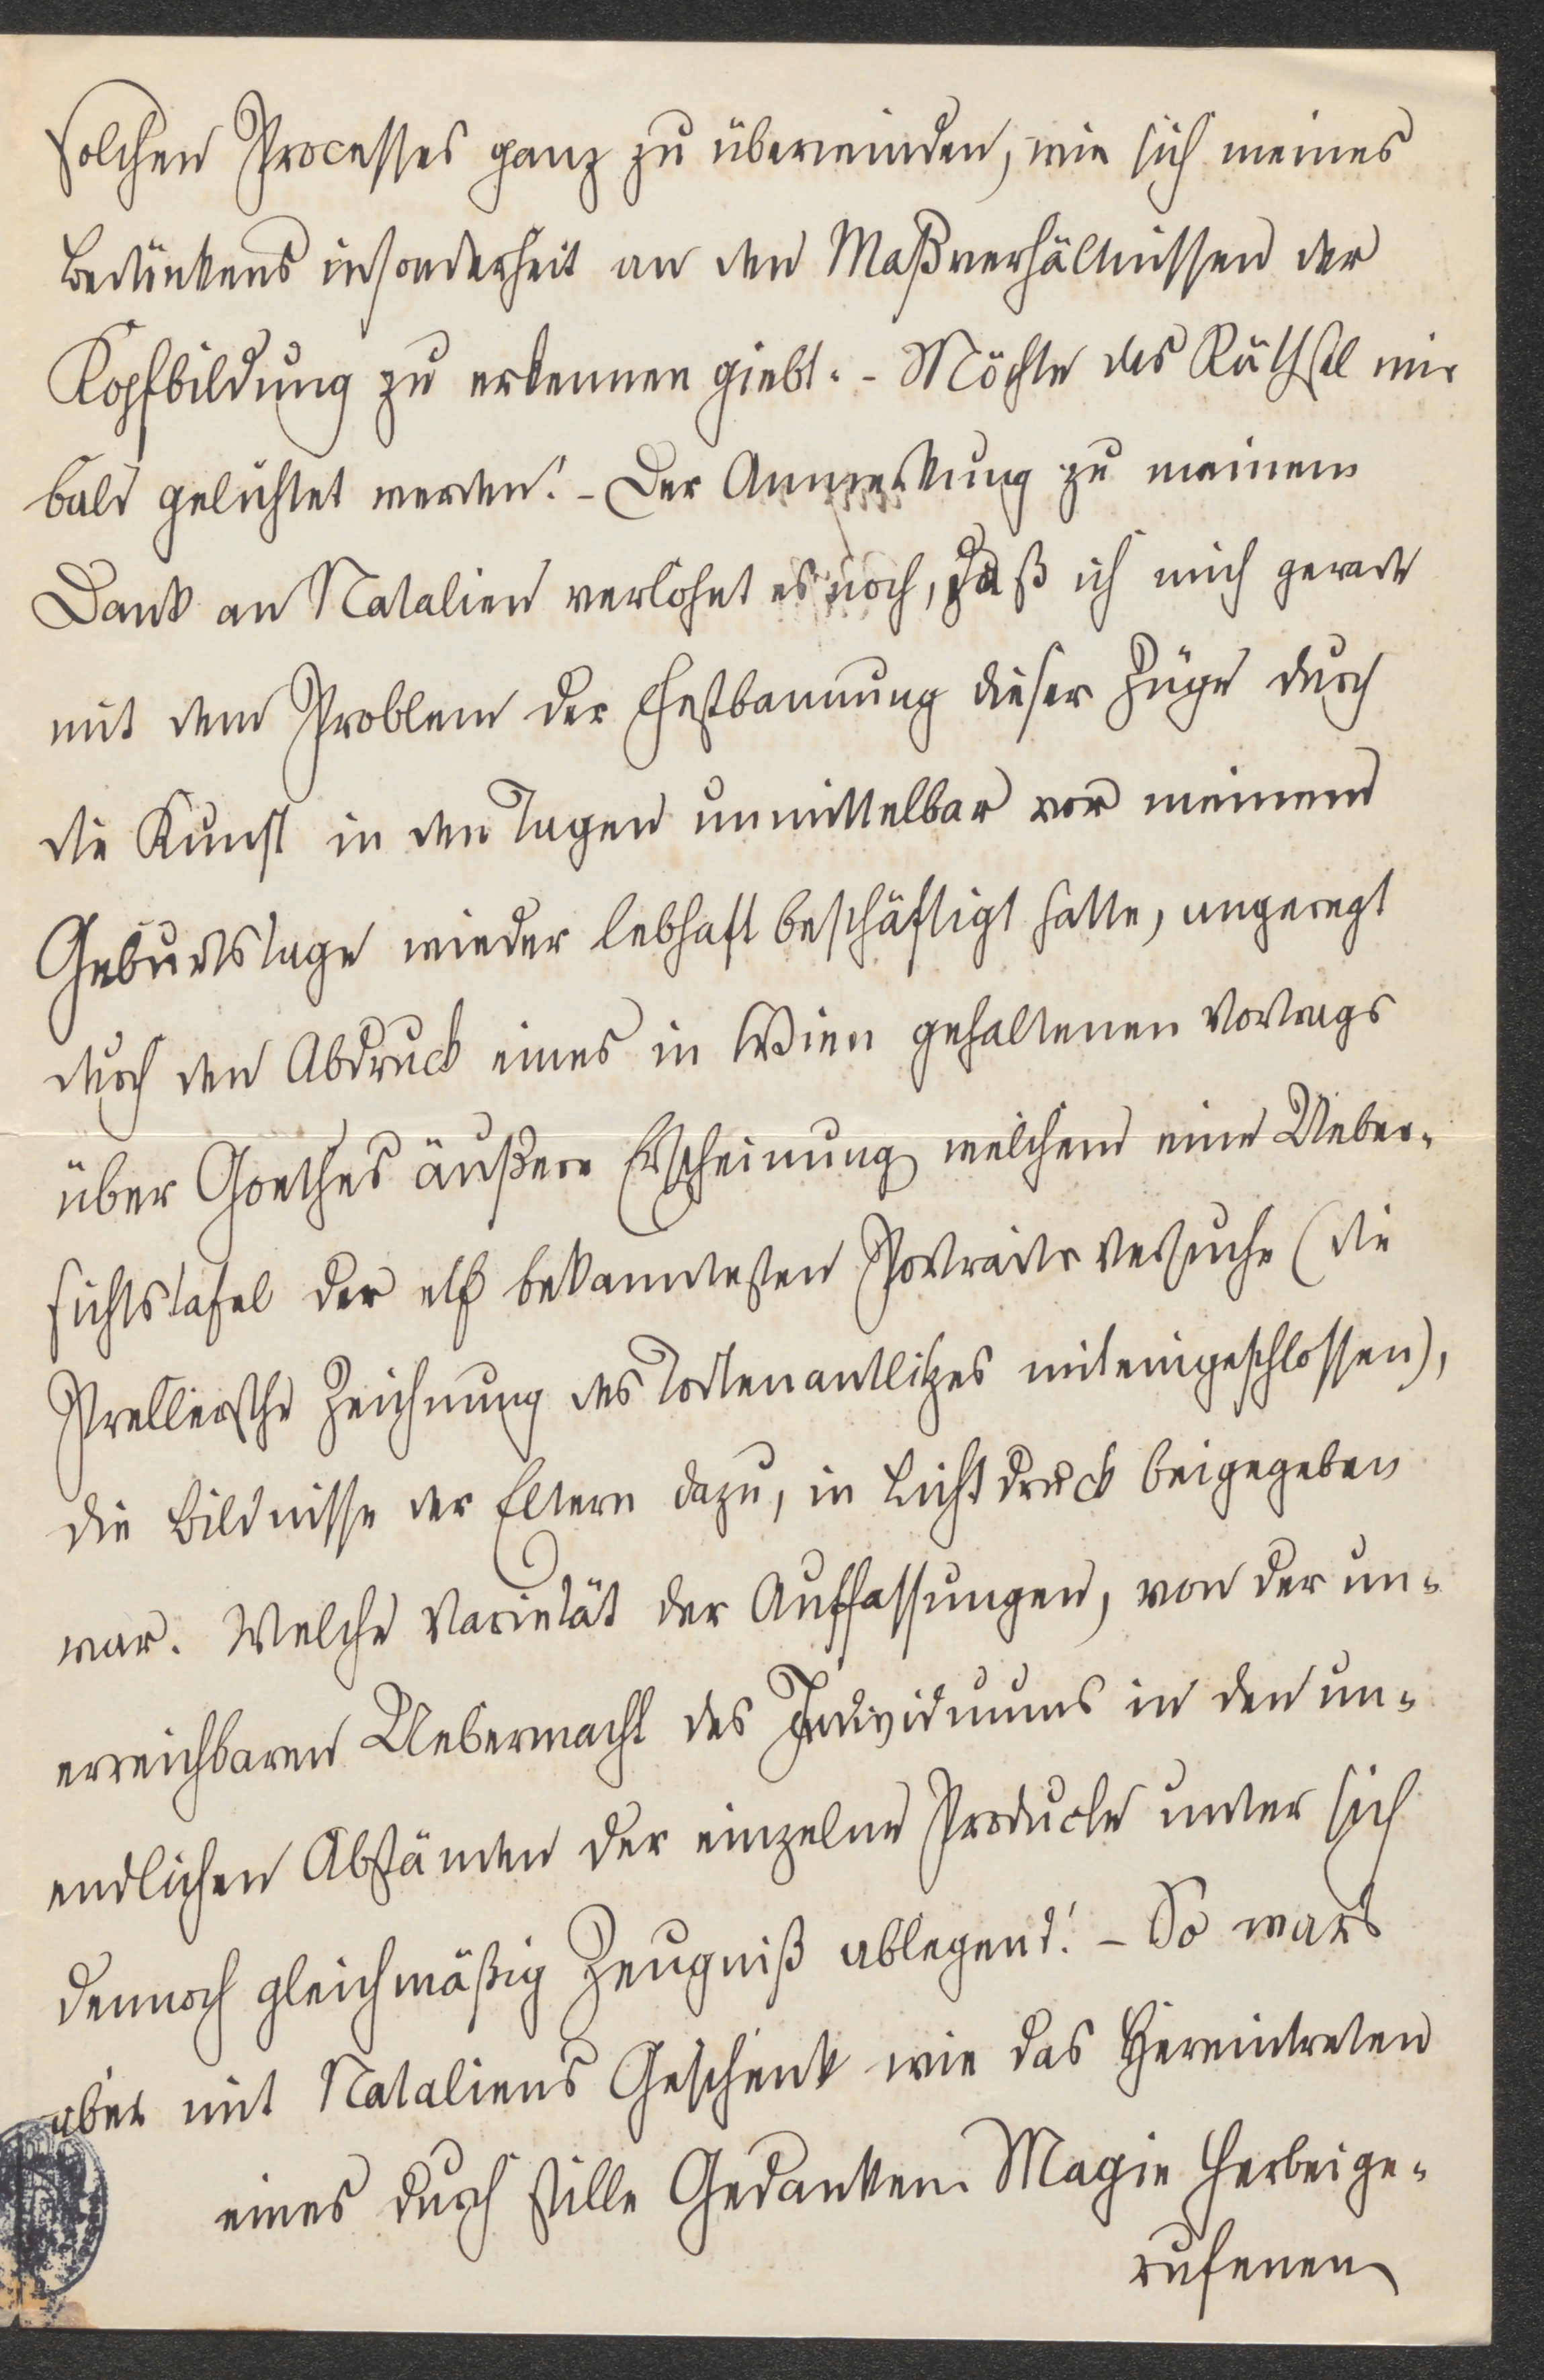 solchen Processes ganz zu überwinden, wie sich meines
Bedünkens insonderheit an den Maßverhältnissen der
Kopfbildung zu erkennen giebt. - Möchte das Räthsel mir
bald gelichtet werden! - Der Anmerkung zu meinem
Dank an Natalien verlohnt es noch, daß ich mich gerade
mit dem Problem der Festbannung dieser Züge durch
die Kunst in den Tagen unmittelbar vor meinem
Geburtstage wieder lebhaft beschäftigt hatte, angeregt
durch den Abdruck eines in Wien gehaltenen Vortrags
über Goethes äußere Erscheinung welchem eine Ueber-
sichtstafel der elf bekanntesten Portraitsversuche (die
Prellersche Zeichnung des Todtenantlitzes miteingeschlossen),
die Bildnisse der Eltern dazu, in Lichtdruck beigegeben
war. Welche Varietät der Auffassungen, von der un-
erreichbaren Uebermacht des Individuums in den un-
endlichen Abständen der einzelne Producte unter sich
dennoch gleichmäßig Zeugniß ablegend! - So wars
aber mit Nataliens Geschenk wie das Hereintreten
eines durch stille Gedanken Magie herbeige-
rufenen